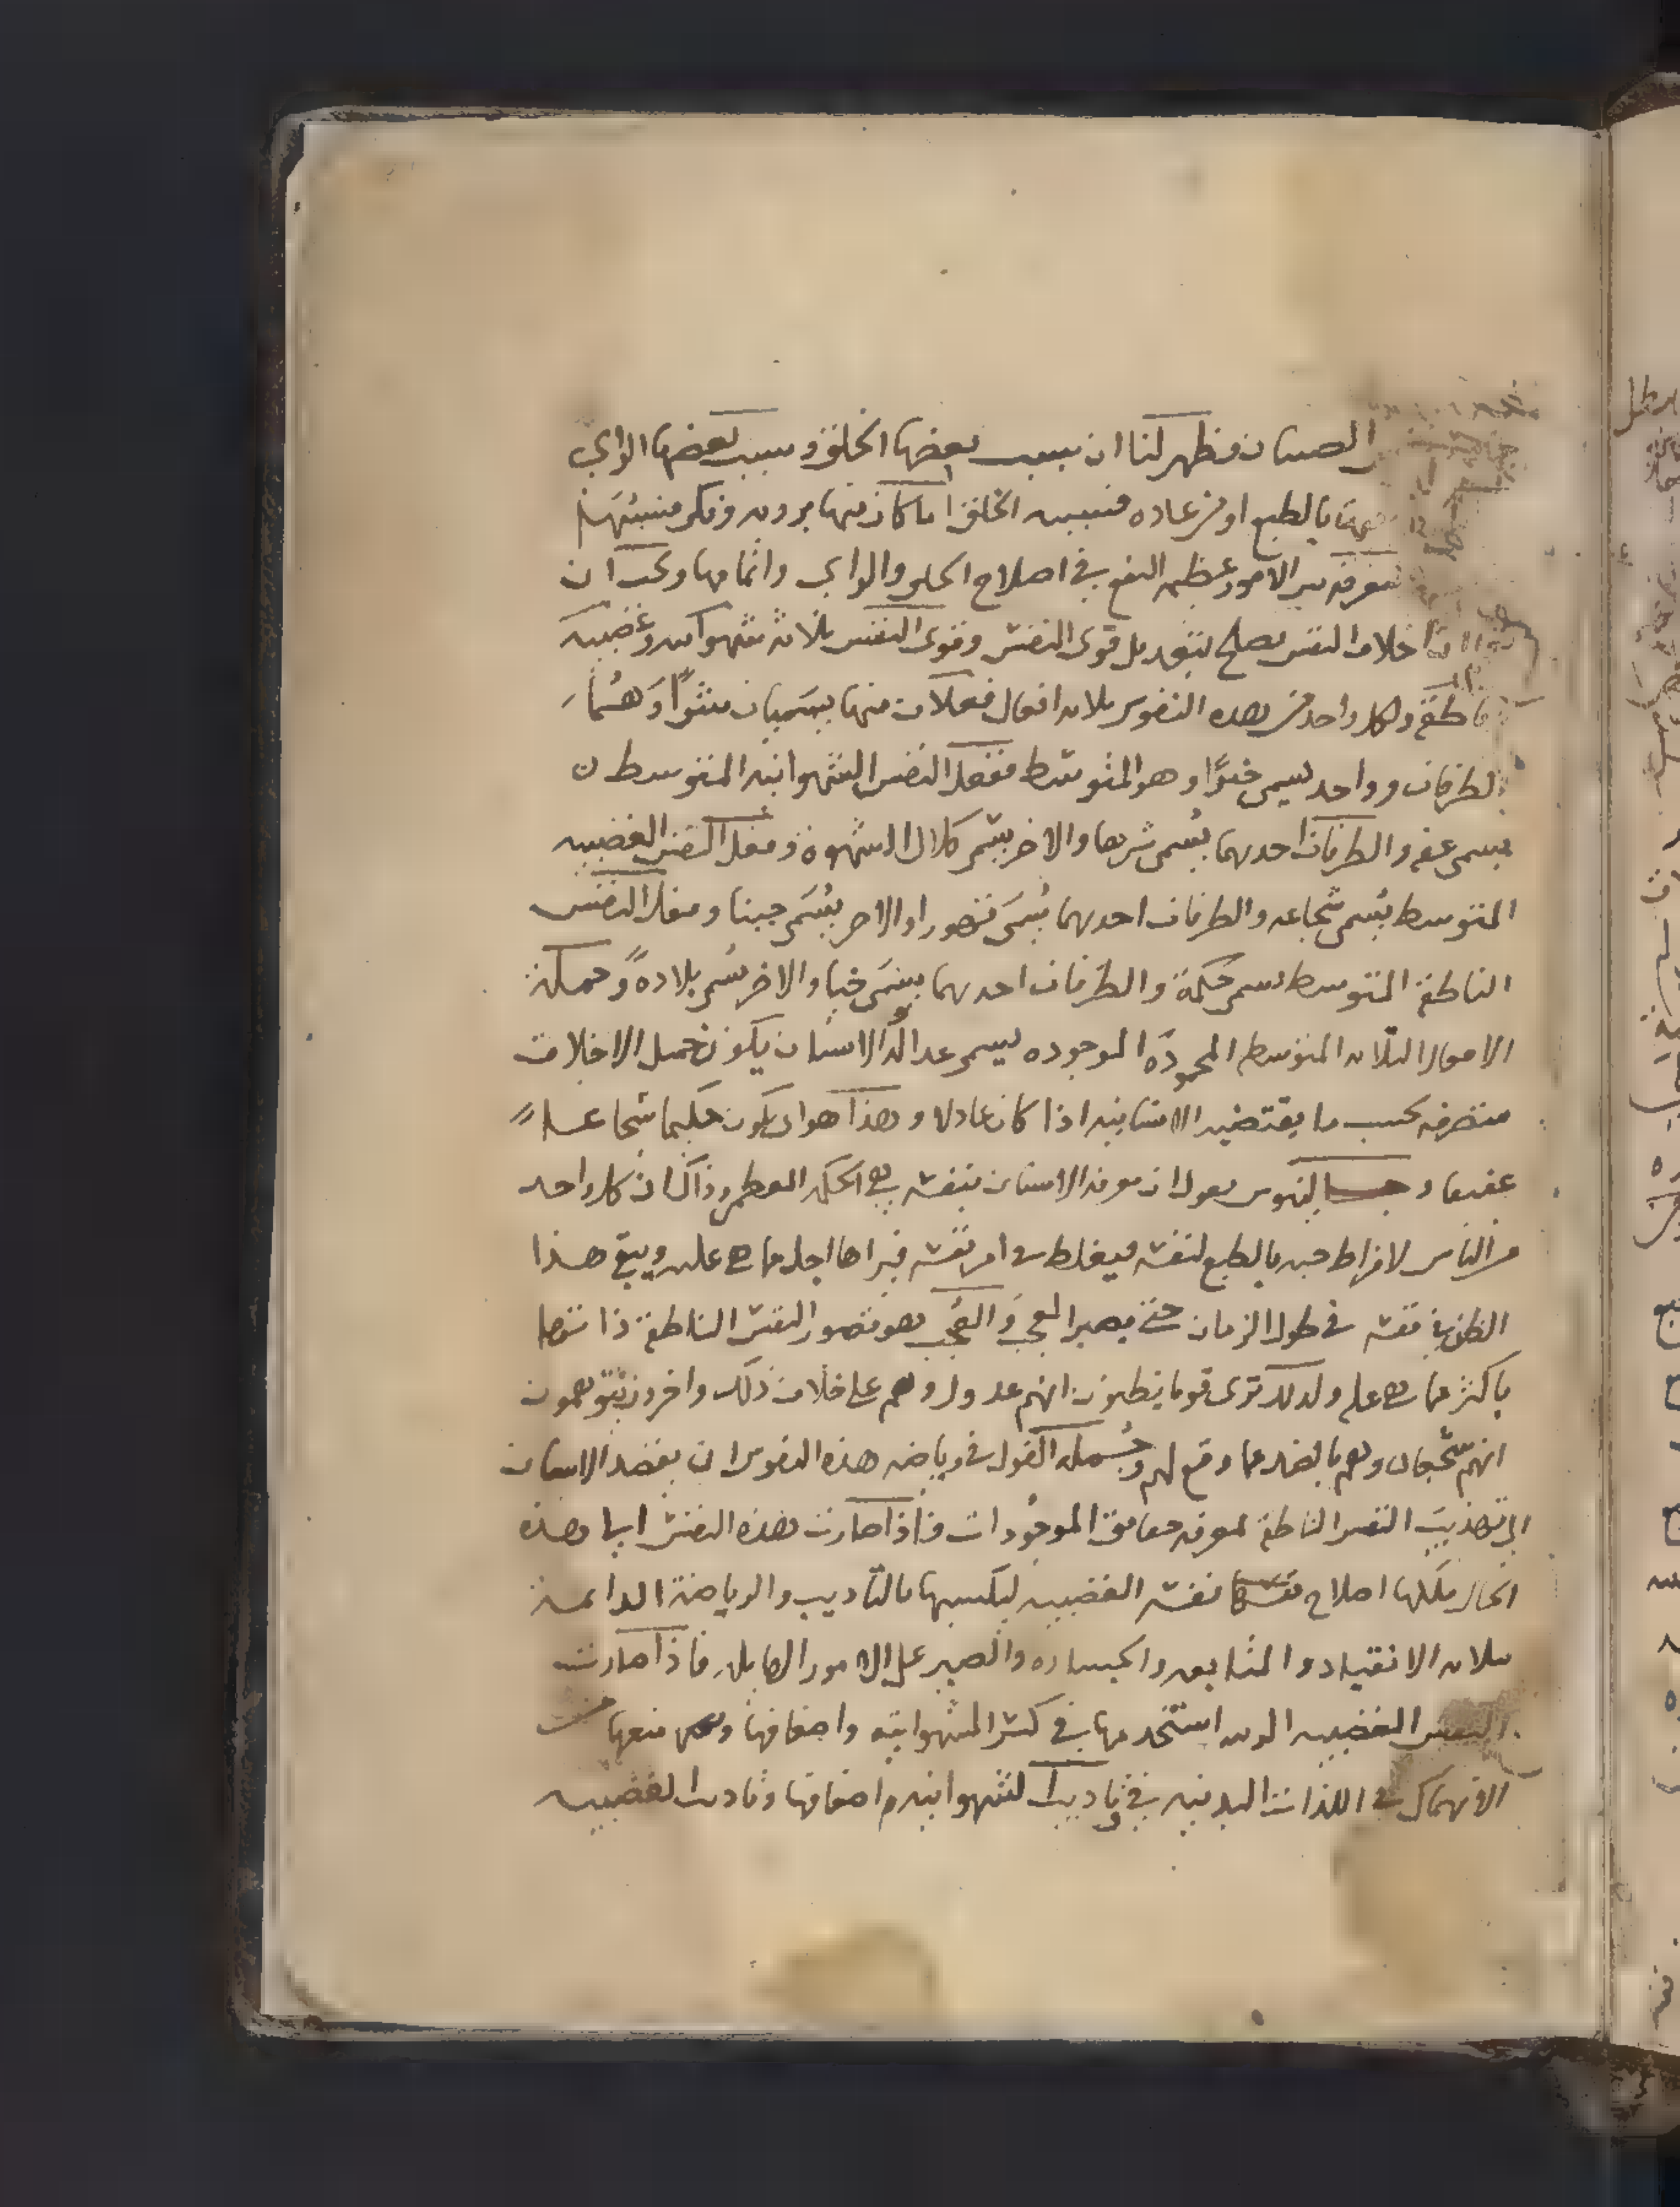 الصبيان فظهر لنا ان سبب بعضها الخلق وسبب بعضها الراي
بالطبع او من عاده فسببه الخلق اما كان منها بروية وفكر فسببه
الامور عظيمه النفع في اصلاح الخلق والراي واتمامها ويجب ان
اخلاق النفس يصلح بتعديل قوى النفس وقوى النفس ثلاثة شهوانيه وغضبيه
ناطقة ولكل واحد من هذه النفوس ثلاثه افعال فعلان منها يسميان شرًا وهما
الطرفان وواحد يسمى خيرًا وهو المتوسط ففعل النفس الشهوانيه المتوسط
يسمى عفه والطرفان احدهما يسمى شرها والاخر يسمى كلال الشهوة وفعل النفس الغضبيه
المتوسط يسمى شجاعه والطرفان احدهما يسمى تهورا والاخر يسمى جبنا وفعل النفس
الناطقة المتوسط يسمى حكمة والطرفان احدهما يسمى خبا والاخر يسمى بلادةً وجملة
الافعال الثلاثه المتوسطه المحمودة الموجوده يسمى عداله الانسان يكون جميل الاخلاق
متصرفه بحسب ما يقتضيه الانسانيه اذا كان عادلا وهذا هو ان يكون حكيما شجاعا
عفيفا وجالينوس يقول ان معرفه الانسان بنفسه هي الحكمه العظمى وذاك ان كل واحد
من الناس لافراط حبه بالطبع لنفسه فيغلط في امر نفسه فيراها اجل مما هي عليه ويبقى هذا
الظن في نفسه في طول الزمان حتى يصير العجب والعجب هو تصور النفس الناطقة ذاتها
باكثر مما هي عليه ولذلك ترى قوما يظنون انهم عدول وهم على خلاف ذلك واخرون يتوهمون
انهم شجعان وهم بالضد مما وقع لهم وجملة القول في رياضه هذه النفوس ان يقصد الانسان
الى تهذيب النفس الناطقة لمعرفه حقائق الموجودات فاذا صارت هذه النفس الى هذه
الحال اصلاح نفسه الغضبيه ليكسبها بالتاديب والرياضة الدائمة
ثلاثه الانقياد والمتابعه والجساره والصبر على الامور الهايله فاذا صارت
النفس الغضبيه استخدمها في كسر الشهوانيه واضعافها منعها من
الانهماك في اللذات البدنيه في تاديب الشهوانيه اضعافها وتاديب الغضبيه